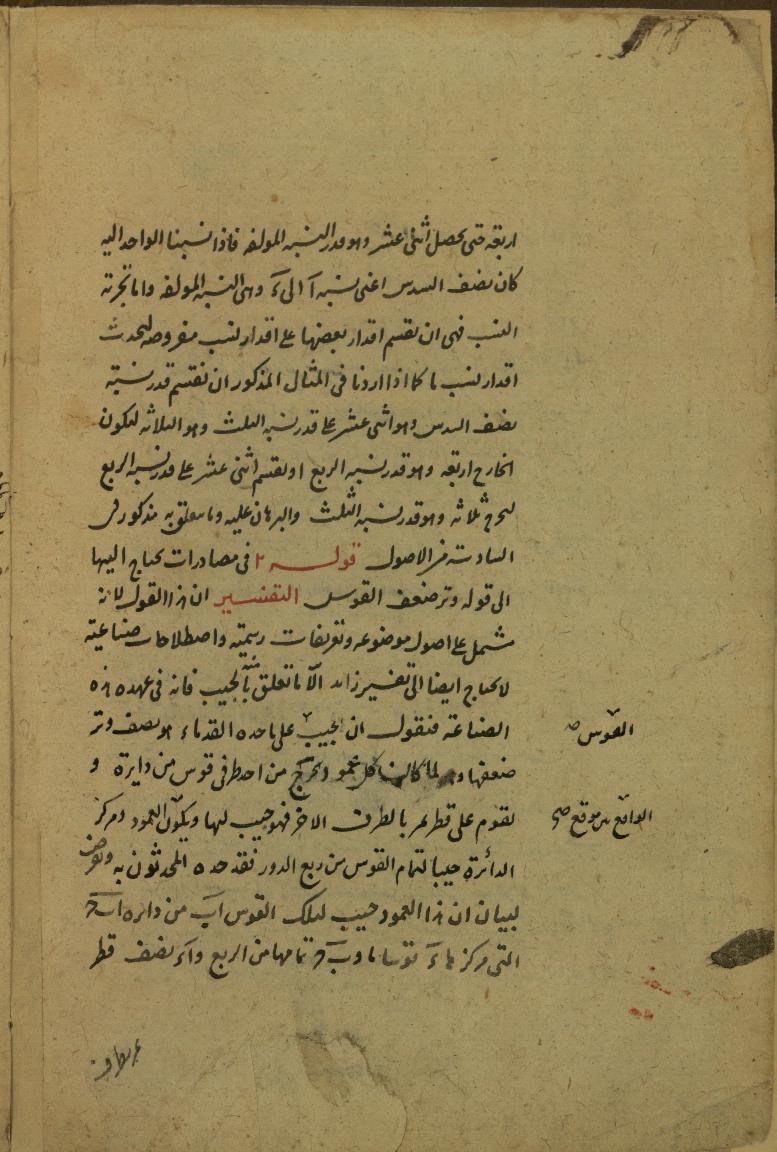 اربعة حتى يحصل اثنى عشر وهو قدر النسبة المؤلفة فاذا نسبنا الواحد اليه
كان نصف السدس اعنى نسبة آ الى ءَ وهى النسبة المؤلفة واما تجزية
النسب فهى ان نقسم اقدار بعضها على اقدار نسب مفروضة ليحدث
اقدار نسب ما كما اذا اردنا فى المثال المذكور ان نقسم قدر نسبة
نصف السدس وهو اثنى عشر على قدر نسبة الثلث وهو الثلاثة ليكون
الخارج اربعة وهو قدر نسبة الربع او نقسم اثنى عشر على قدر نسبة الربع
ليخرج ثلاثة وهو قدر نسبة الثلث والبرهان عليه وما يتعلق به مذكور فى
السادسة من الاصول قوله فى مصادرات يحتاج اليها
الى قوله وتر ضعف القوس التفسير ان هذا القول لانه
مشتمل على اصول موضوعة وتعريفات رسمية واصطلاحات صناعية
لا يحتاج ايضا الى تفسير زايد الا ما تعلق بالجيب فانه فى عهدة هذه
الصناعة فنقول ان الجيب على ما حده القدماء هو نصف وتر
القوس صح
ضعفها ولما كان كل عمود يخرج من احد طرفى قوس من دايرة و
يقوم على قطر يمر بالطرف الاخر فهو جيب لها ويكون العمود ومركز
الواقع بين موقع صح
الدائرة جيبا لتمام القوس من ربع الدور فقد حده المحدثون به ونعرض
لبيان ان هذا العمود جيب لتلك القوس اب من دايرة
التى مركزها ءَ قوسا ما و تمامها من الربع و نصف قطر